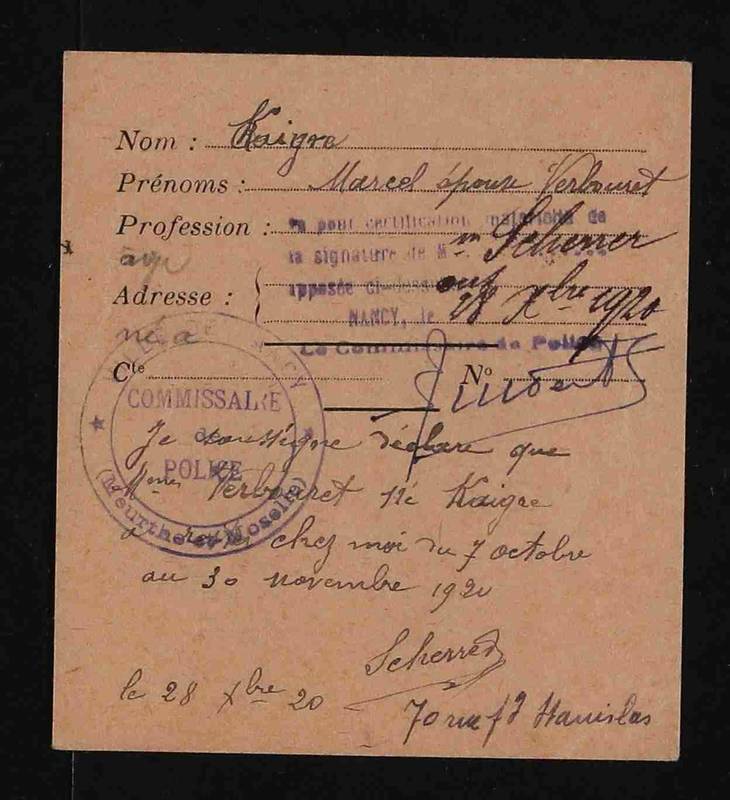 Nom : Kaigre
Prénoms : Marcel épouse Verbouret
Profession :
Vu pour certification matérielle de
la signature de M. Scherrer
âge
apposée ci-dessus
Adresse :
NANCY, le 28 Xbre 1920
né à
Le Commissaire de Police
Cte
N°
VILLE DE NANCY
COMMISSAIRE
de
POLICE
(Meurthe et Moselle)
Je soussigné déclare que
Mme Verbouret née Kaigre
a chez moi du 7 octobre
au 30 novembre 1920
Scherrer
le 28 Xbre 20
70 rue fg Stanislas